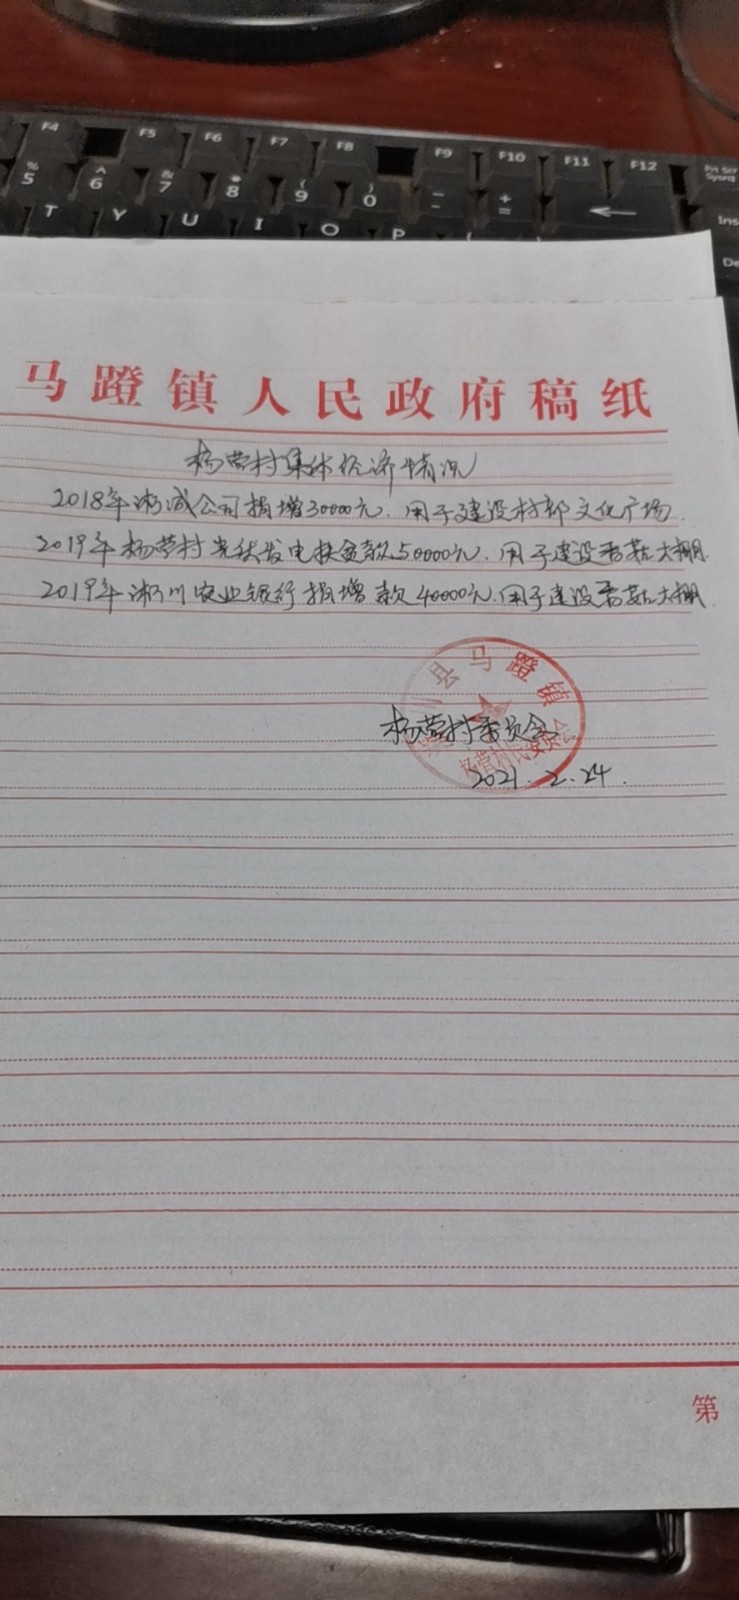 F4 F5 F6 F7 F8 F9 F10 F11 F12 Prt Scr
% 5 ^ 6 & 7 * 8 ( 9 ) 0 _ - + = ← Ins
T Y U I O P De
马蹬镇人民政府稿纸
杨营村集体经济情况
2018年淅减公司捐增30000元.用于建设村部文化广场.
2019年杨营村光伏发电扶金款50000元.用于建设香菇大棚.
2019年淅川农业银行捐增款40000元.用于建设香菇大棚.
川县马蹬镇
杨营村民委员会
杨营村委员会
2021.2.24.
第